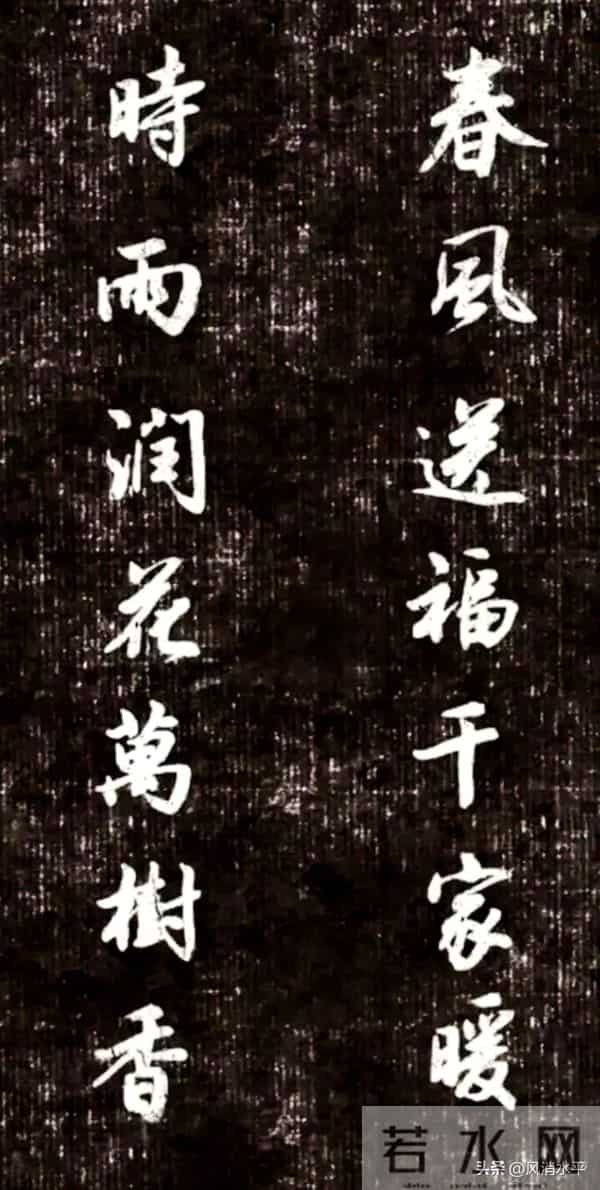 春風送福千家暖
時雨润花萬樹香
若水网
头条@风消水平